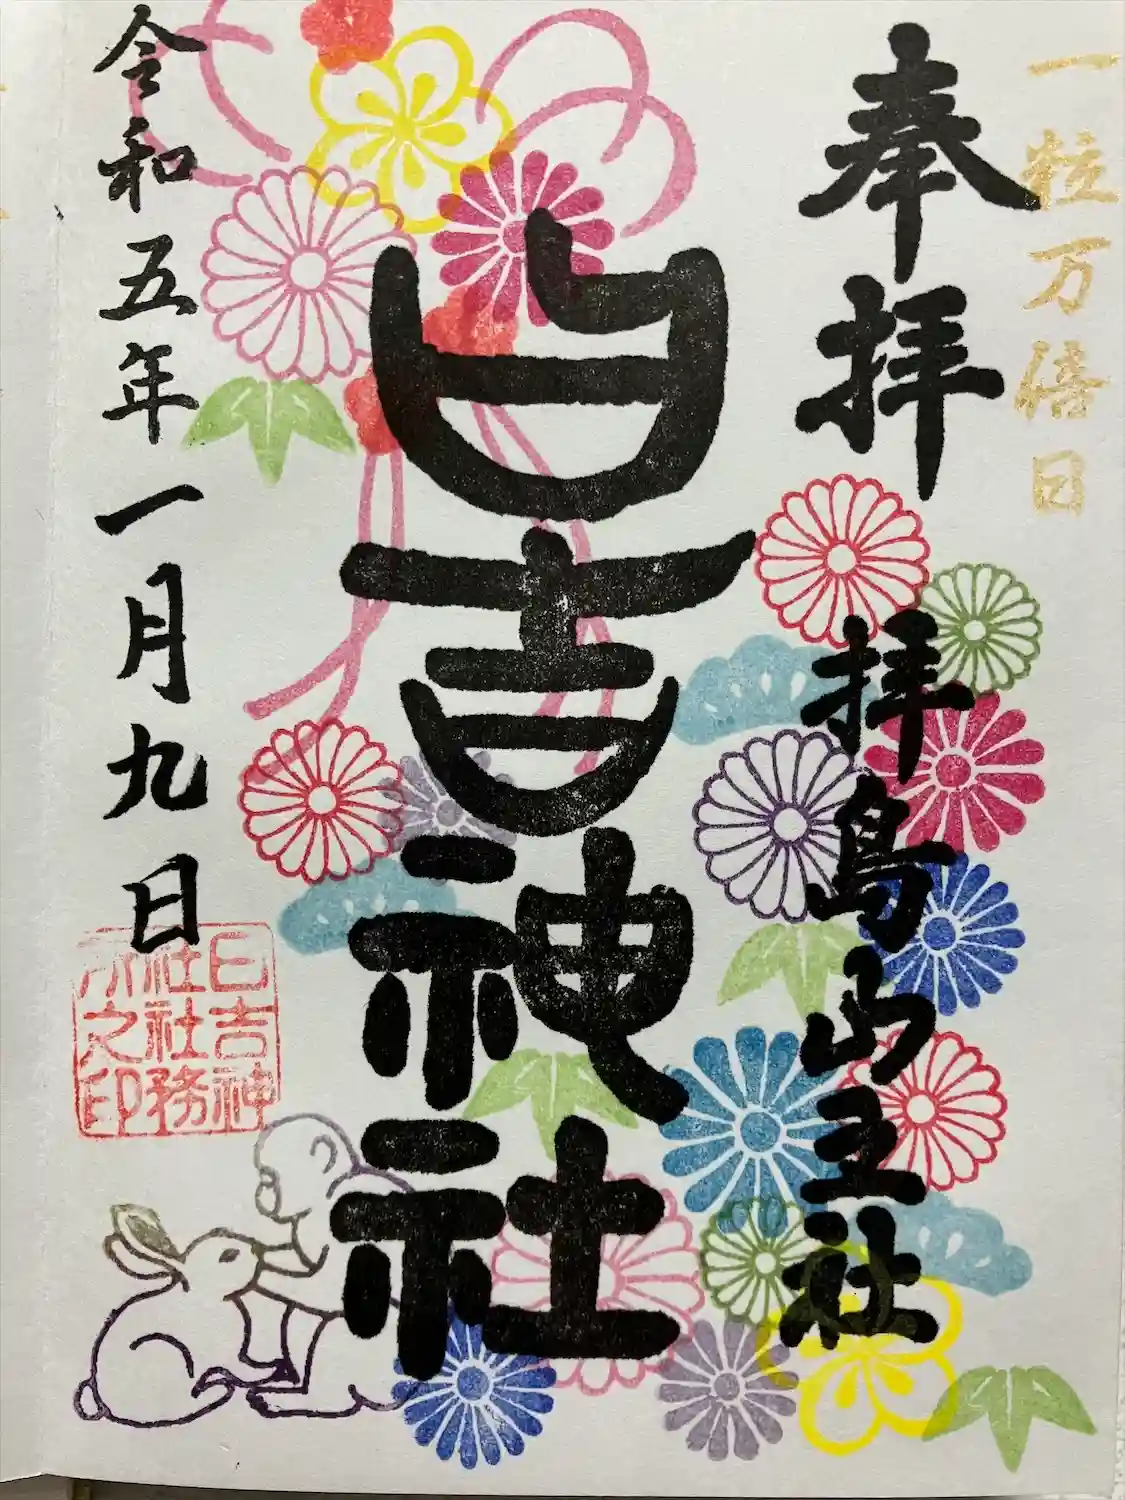 一粒万倍日
奉拝
拝島山王社
日吉神社
令和五年一月九日
日吉神
社社務
所之印